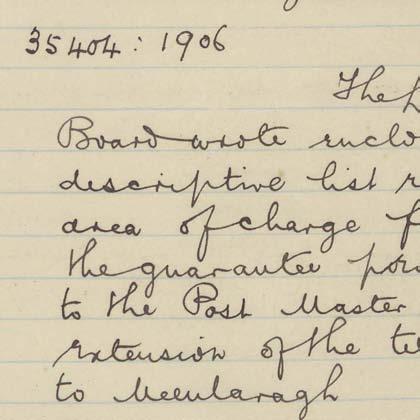 35404: 1906
The
Board wrote enclo
descriptive list r
area of charge f
the guarantee
to the Post Master
extension of the te
to Meenlaragh